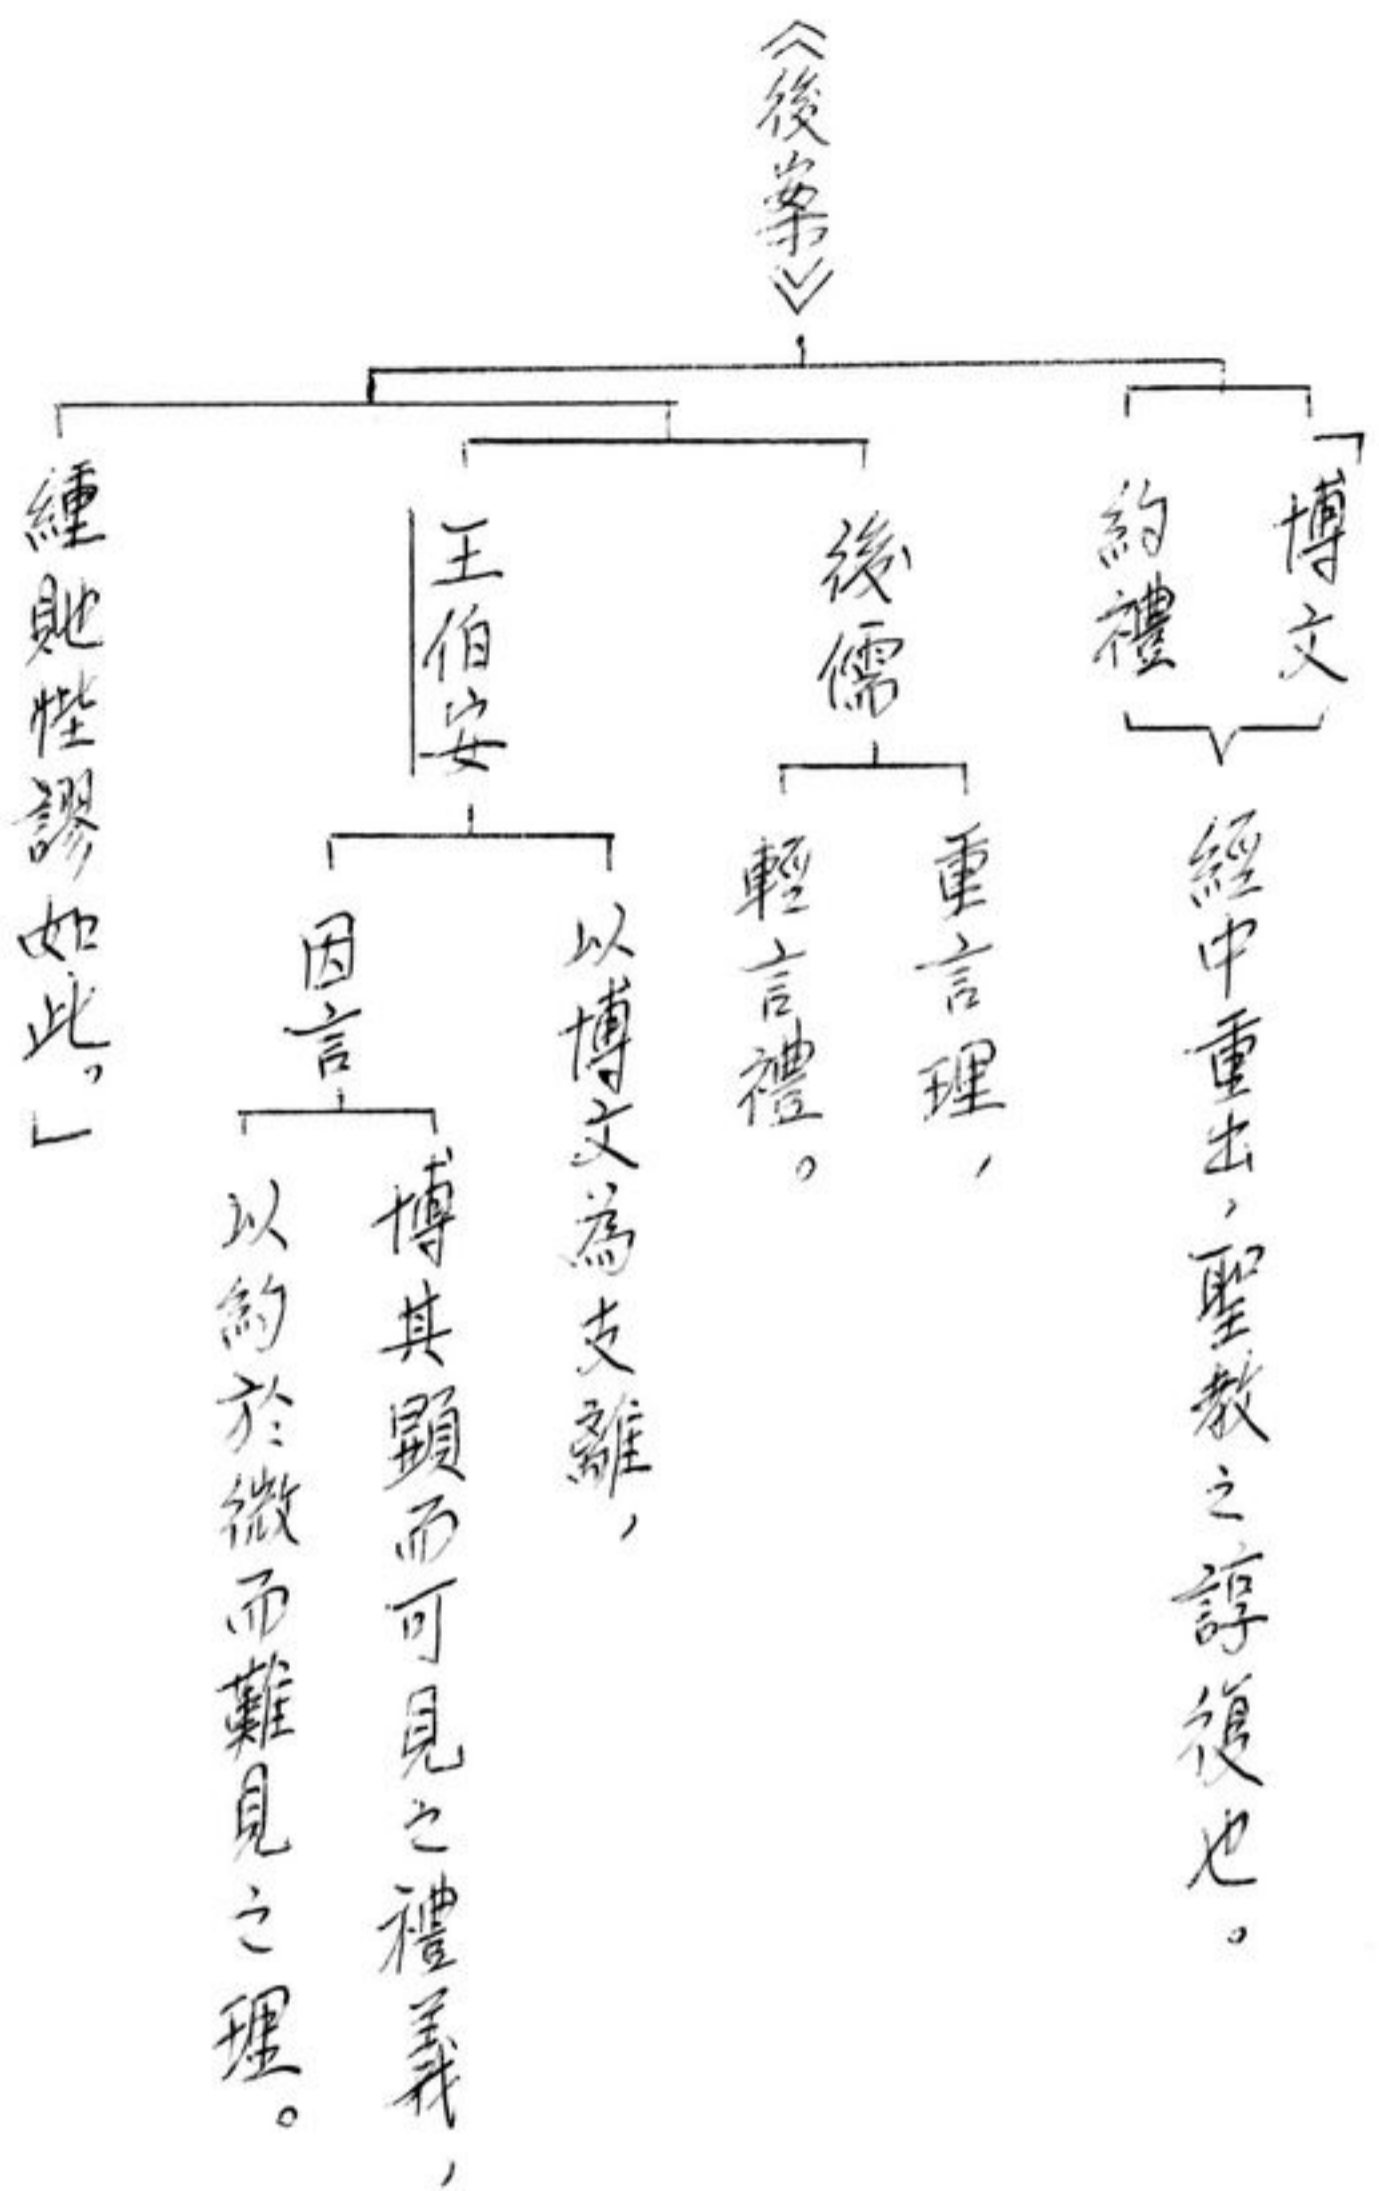 《後案》
「博文
約禮
經中重出，聖教之諄復也。
後儒
重言理，
輕言禮。
王伯安
以博文為支離，
因言
博其顯而可見之禮義，
以約於微而難見之理。
繵貤悂謬如此。」